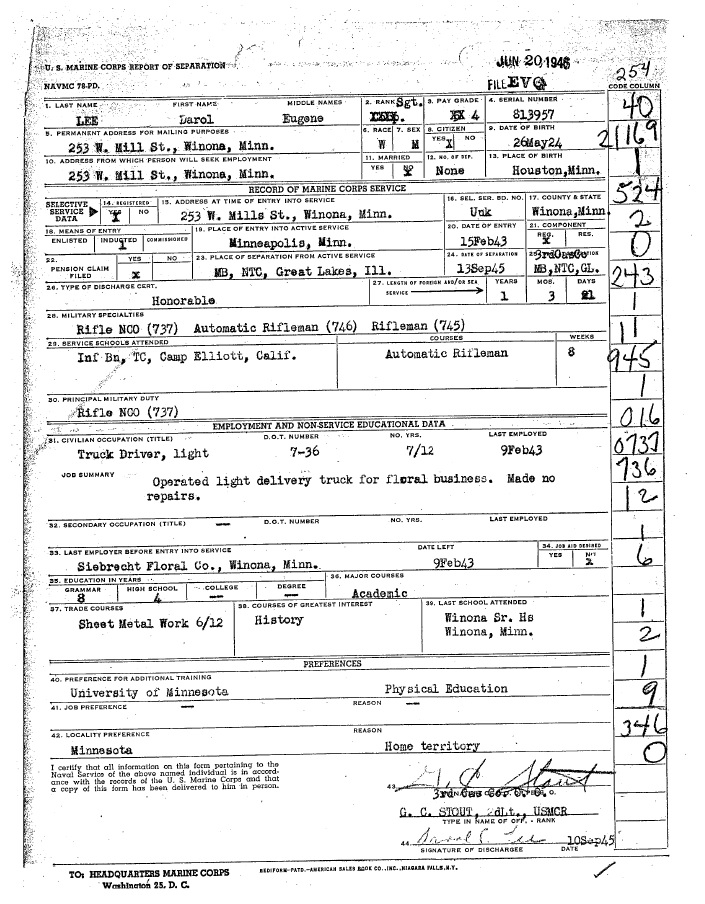 JUN 20 1946
U. S. MARINE CORPS REPORT OF SEPARATION
254
NAVMC 78-PD.
FILE EVG
CODE COLUMN
1. LAST NAME FIRST NAME MIDDLE NAMES 2. RANK Sgt. 3. PAY GRADE 4. SERIAL NUMBER
LEE Darol Eugene 4 813957
40
5. PERMANENT ADDRESS FOR MAILING PURPOSES 6. RACE 7. SEX 8. CITIZEN 9. DATE OF BIRTH
YES NO
253 W. Mill St., Winona, Minn. W M X 26May24
2 1169
10. ADDRESS FROM WHICH PERSON WILL SEEK EMPLOYMENT 11. MARRIED 12. NO. OF DEP. 13. PLACE OF BIRTH
YES NO
253 W. Mill St., Winona, Minn. X None Houston,Minn.
1
RECORD OF MARINE CORPS SERVICE
524
SELECTIVE SERVICE DATA 14. REGISTERED 15. ADDRESS AT TIME OF ENTRY INTO SERVICE 16. SEL. SER. BD. NO. 17. COUNTY & STATE
YES NO
X 253 W. Mills St., Winona, Minn. Unk Winona,Minn.
2
18. MEANS OF ENTRY 19. PLACE OF ENTRY INTO ACTIVE SERVICE 20. DATE OF ENTRY 21. COMPONENT
ENLISTED INDUCTED COMMISSIONED REG. RES.
X Minneapolis, Minn. 15Feb43 X
0
22. YES NO 23. PLACE OF SEPARATION FROM ACTIVE SERVICE 24. DATE OF SEPARATION 3rdCasCo
PENSION CLAIM FILED X MB, NTC, Great Lakes, Ill. 13Sep45 MB,NTC,GL.
243
26. TYPE OF DISCHARGE CERT. 27. LENGTH OF FOREIGN AND/OR SEA SERVICE YEARS MOS. DAYS
Honorable 1 3 21
1
28. MILITARY SPECIALTIES
Rifle NCO (737) Automatic Rifleman (746) Rifleman (745)
11
29. SERVICE SCHOOLS ATTENDED COURSES WEEKS
Inf Bn, TC, Camp Elliott, Calif. Automatic Rifleman 8
945
1
30. PRINCIPAL MILITARY DUTY
Rifle NCO (737)
016
EMPLOYMENT AND NON-SERVICE EDUCATIONAL DATA
31. CIVILIAN OCCUPATION (TITLE) D.O.T. NUMBER NO. YRS. LAST EMPLOYED
Truck Driver, light 7-36 7/12 9Feb43
0737
736
JOB SUMMARY Operated light delivery truck for floral business. Made no
repairs.
12
32. SECONDARY OCCUPATION (TITLE) — D.O.T. NUMBER NO. YRS. LAST EMPLOYED
1
33. LAST EMPLOYER BEFORE ENTRY INTO SERVICE DATE LEFT 34. JOB AID DESIRED
YES NO
Siebrecht Floral Co., Winona, Minn. 9Feb43
6
35. EDUCATION IN YEARS 36. MAJOR COURSES
GRAMMAR HIGH SCHOOL COLLEGE DEGREE
8 4 — — Academic
37. TRADE COURSES 38. COURSES OF GREATEST INTEREST 39. LAST SCHOOL ATTENDED
1
Sheet Metal Work 6/12 History Winona Sr. Hs
Winona, Minn.
2
PREFERENCES
1
40. PREFERENCE FOR ADDITIONAL TRAINING
University of Minnesota Physical Education
9
41. JOB PREFERENCE — REASON —
346
42. LOCALITY PREFERENCE REASON
Minnesota Home territory
0
I certify that all information on this form pertaining to the
Naval Service of the above named individual is in accord-
ance with the records of the U. S. Marine Corps and that
a copy of this form has been delivered to him in person.
43. G. C. Stout
G. C. STOUT, 2dLt., USMCR
TYPE IN NAME OF OFF. - RANK
44. Darol E. Lee 10Sep45
SIGNATURE OF DISCHARGEE DATE
TO: HEADQUARTERS MARINE CORPS
Washington 25, D. C.
REDIFORM-PATD.-AMERICAN SALES BOOK CO., INC., NIAGARA FALLS, N.Y.